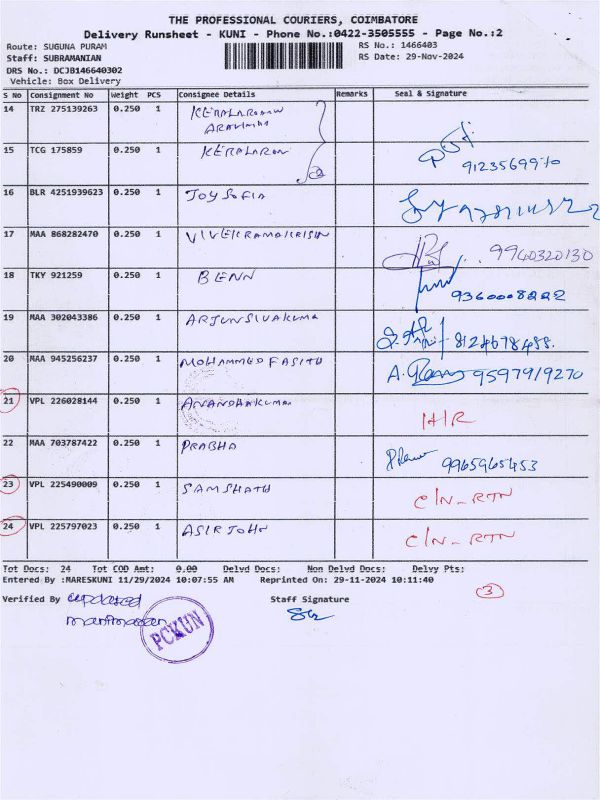 THE PROFESSIONAL COURIERS, COIMBATORE
Delivery Runsheet - KUNI - Phone No.:0422-3505555 - Page No.:2
Route: SUGUNA PURAM RS No.: 1466403
Staff: SUBRAMANIAN RS Date: 29-Nov-2024
DRS No.: DCJB146640302
Vehicle: Box Delivery
S No Consignment No Weight PCS Consignee Details Remarks Seal & Signature
14 TRZ 275139263 0.250 1
15 TCG 175859 0.250 1 KERALARON 9123569970
16 BLR 4251939623 0.250 1 JOY SOFIA
17 MAA 868282470 0.250 1 VIVEKRAMAKRISHN 9960320130
18 TKY 921259 0.250 1 BENN 9360008222
19 MAA 302043386 0.250 1 ARJUNSIVAKUMA 8124678488.
20 MAA 945256237 0.250 1 MOHAMMED FASITH A. 9597919270
21 VPL 226028144 0.250 1 ANANDHAKUMA H/R
22 MAA 703787422 0.250 1 PRABHA 9965965453
23 VPL 225490009 0.250 1 SAMSHATH C/N-RTN
24 VPL 225797023 0.250 1 ASIR JOHN C/N-RTN
Tot Docs: 24 Tot COD Amt: 0.00 Delvd Docs: Non Delvd Docs: Delvy Pts:
Entered By :MARESKUNI 11/29/2024 10:07:55 AM Reprinted On: 29-11-2024 10:11:40
3
Verified By updated Staff Signature
PCKUN